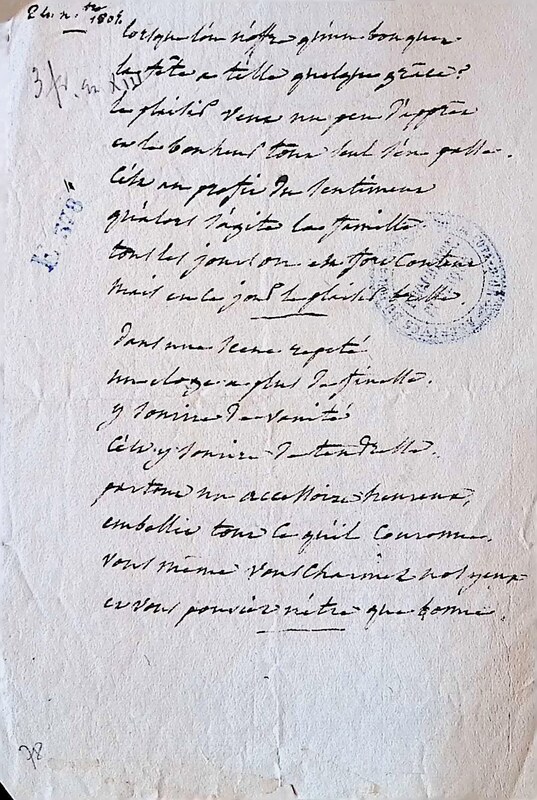 24. n.bre 1804.
3 fr. an XIII
K. 378
lorsque l'on n'offre qu'un bouquet
la fête a t'elle quelque grâce?
le plaisir veut un peu d'apprêt
et le bonheur tout seul s'en passe.
C'est au profit du sentiment
qu'alors s'agite la famille
tous les jours on est fort content
Mais en ce jour le plaisir brille.
dans une scene
un eloge a plus de finesse.
y sourire de vanité
C'est y sourire de tendresse.
partout un accessoire heureux,
embellit tout ce qu'il couronne.
vous même vous charmez nos yeux
et vous pouviez n'être que bonne.
38